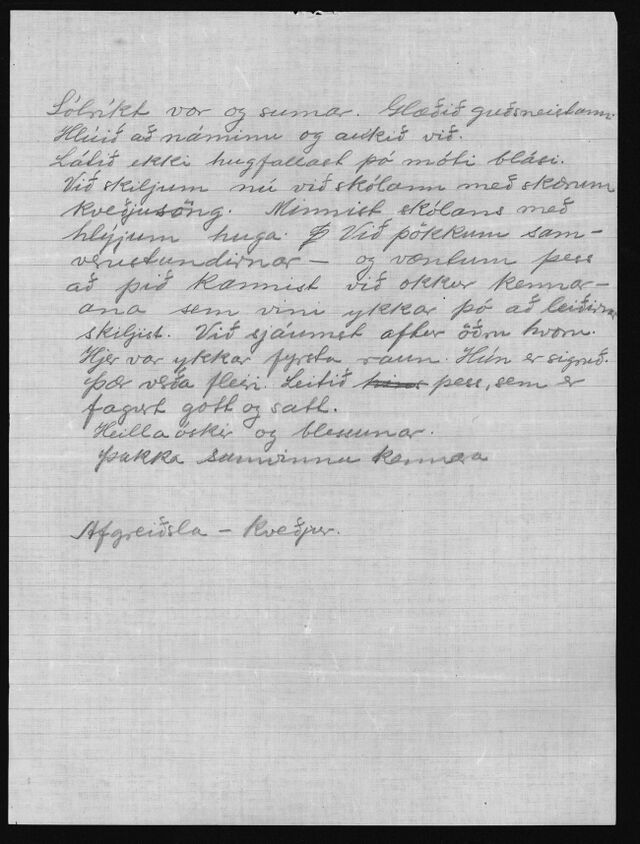 Sólríkt vor og sumar. Glæðið guðsneistann.
Hlúið að náminu og aukið við.
Látið ekki hugfallast þó móti blási.
Við skiljum nú við skólann með skærum
kveðjusöng. Minnist skólans með
hlýjum huga. Við þökkum sam-
verustundirnar – og væntum þess
að þið kannist við okkur kennar-
ana sem vini ykkar þó að leiðirnar
skiljist. Við sjáumst aftur öðru hvoru.
Hjer var ykkar fyrsta raun. Hún er sigruð.
Þær verða fleiri. Leitið þess, sem er
fagurt gott og satt.
Heillaóskir og blessunar.
Þakka samvinnu kennara
Afgreiðsla – Kveðjur.